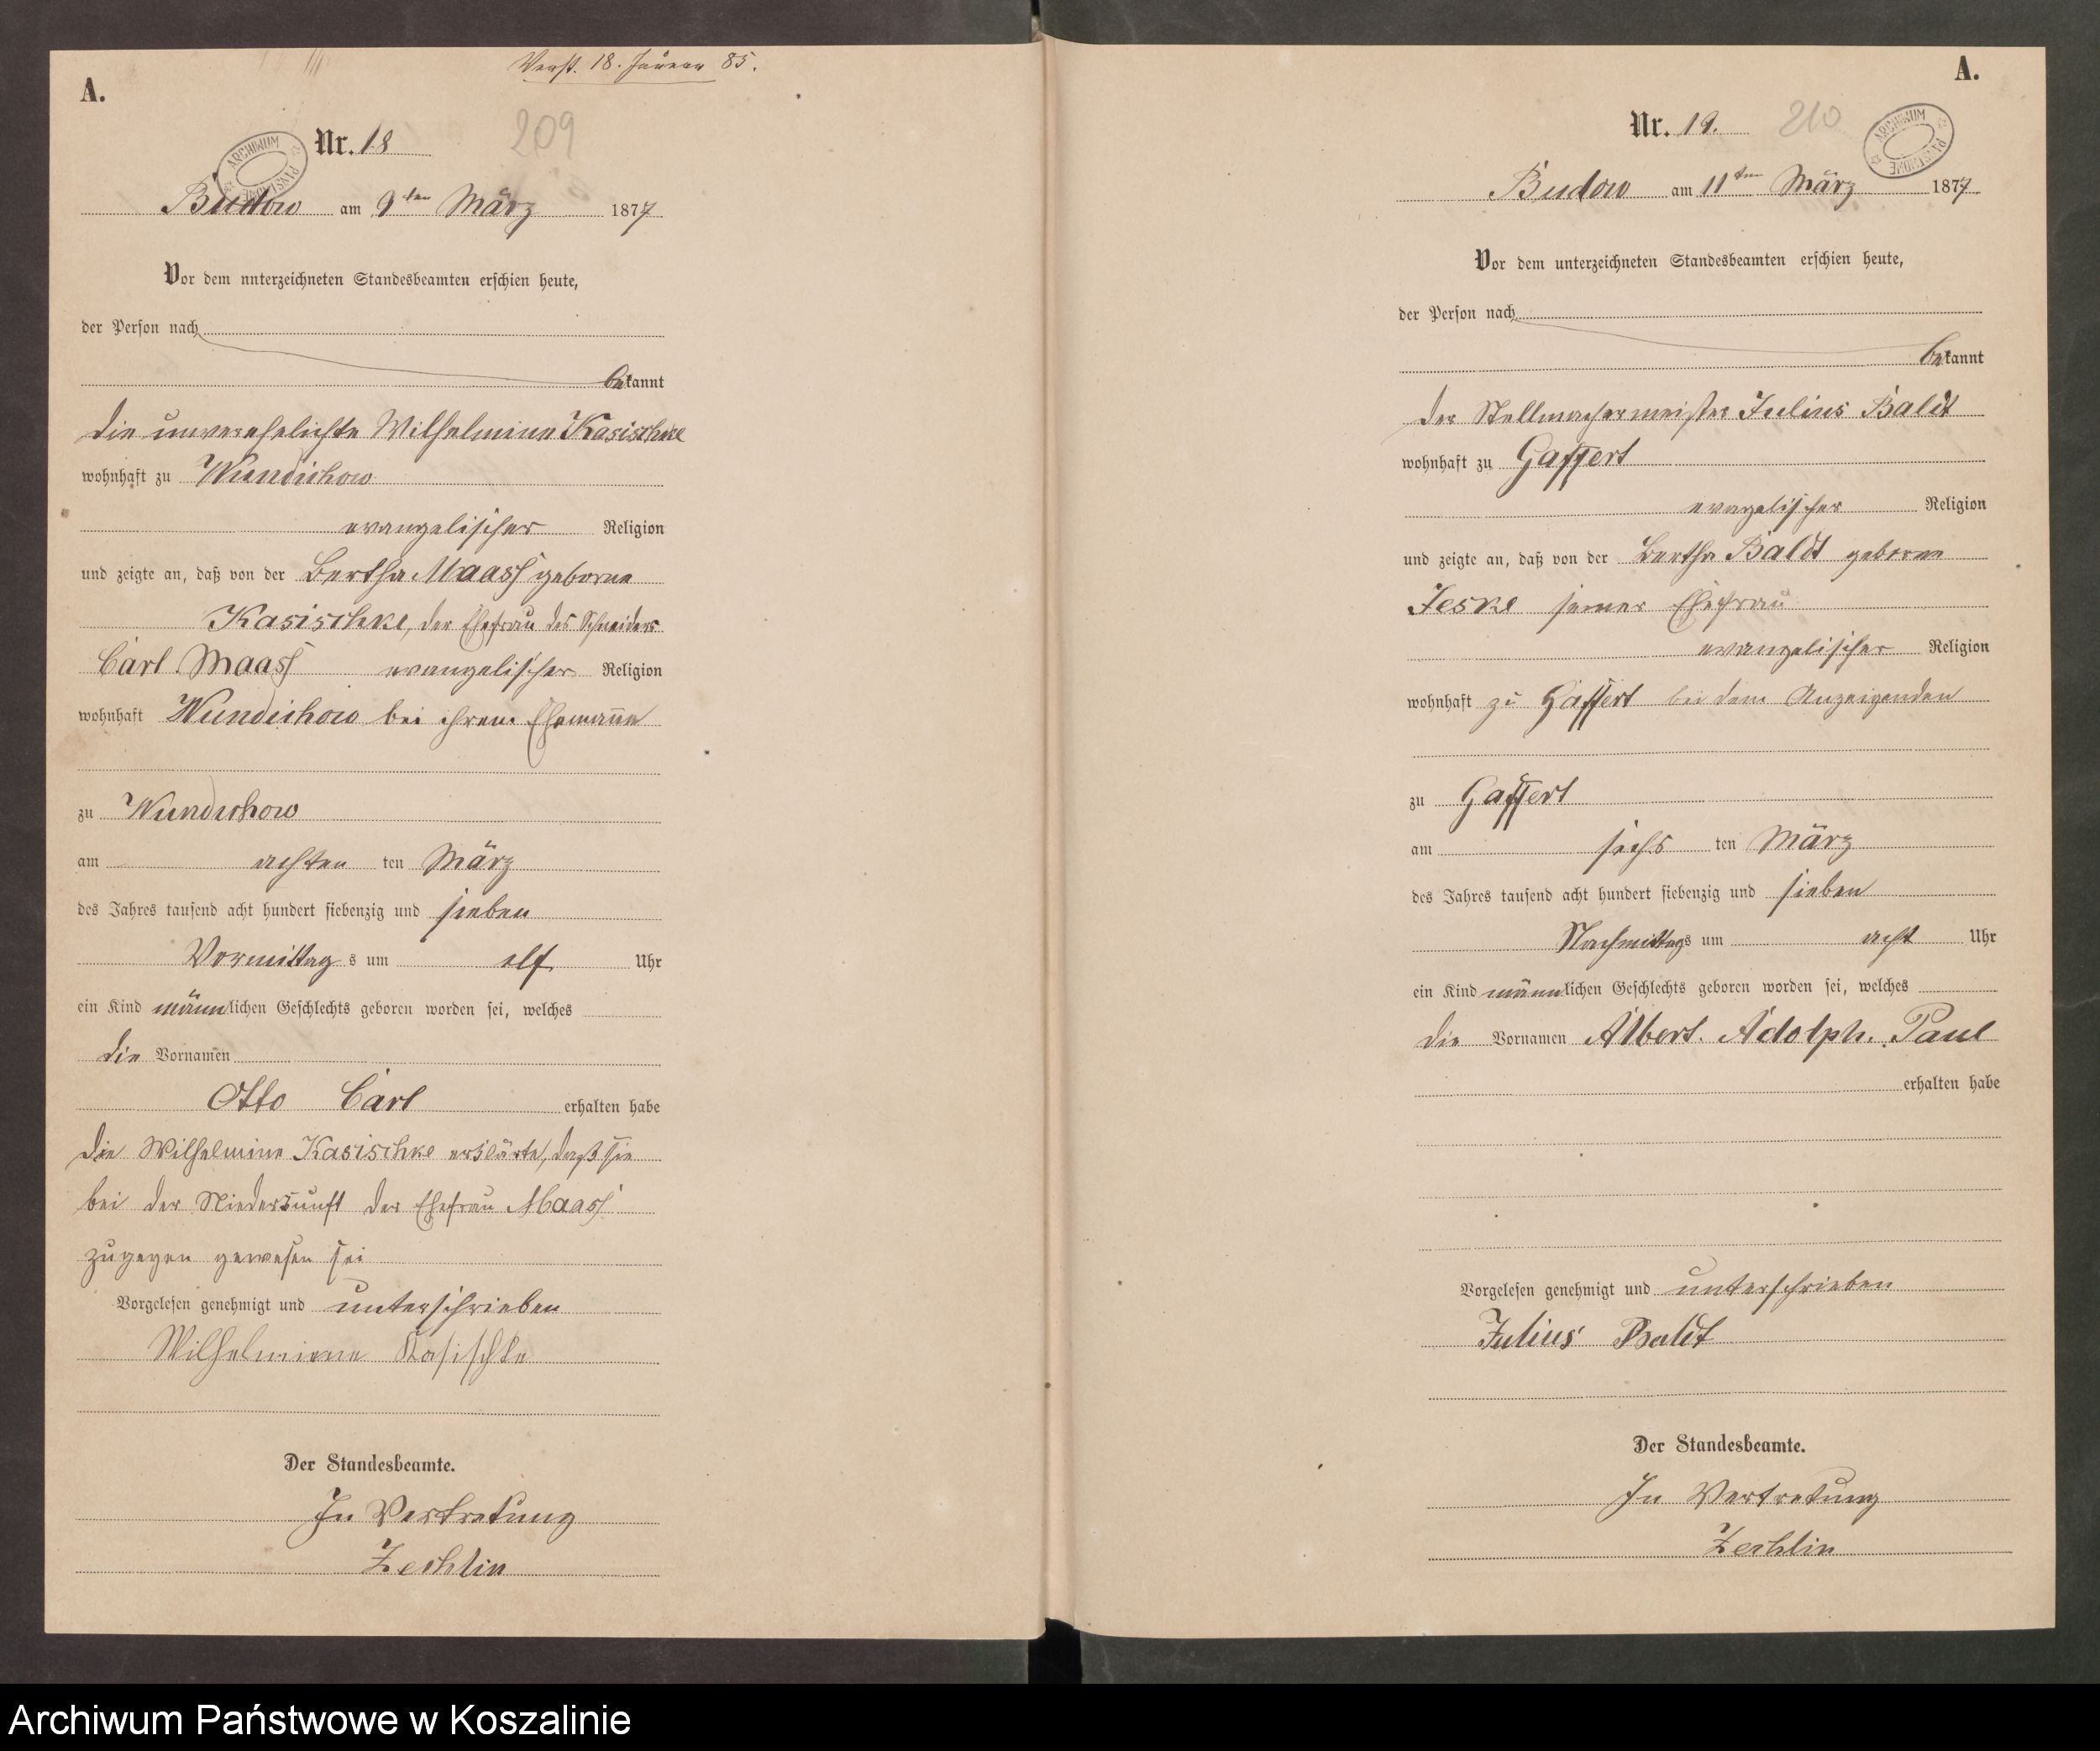 Verst. 18. Januar 85.
A.
Nr. 18
209
ARCHIWUM PAŃSTWOWE
Budow am 9ten März 1877
Vor dem unterzeichneten Standesbeamten erschien heute,
der Person nach
bekannt
die unverehelichte Wilhelmine Kasischke
wohnhaft zu Wundichow
evangelischer Religion
und zeigte an, daß von der Bertha Maass geborne
Kasischke, der Ehefrau des Schneiders
Carl Maass evangelischer Religion
wohnhaft Wundichow bei ihrem Ehemanne
zu Wundichow
am achten ten März
des Jahres tausend acht hundert siebenzig und sieben
Vormittag s um elf Uhr
ein Kind männlichen Geschlechts geboren worden sei, welches
die Vornamen
Otto Carl erhalten habe
die Wilhelmine Kasischke erklärte, daß sie
bei der Niederkunft der Ehefrau Maass
zugegen gewesen sei
Vorgelesen genehmigt und unterschrieben
Wilhelmiene Kasischke
Der Standesbeamte.
In Vertretung
Zechlin
A.
Nr. 19.
210
ARCHIWUM PAŃSTWOWE
Budow am 11ten März 1877
Vor dem unterzeichneten Standesbeamten erschien heute,
der Person nach
bekannt
der Stellmachermeister Julius Baldt
wohnhaft zu Gaffert
evangelischer Religion
und zeigte an, daß von der Bertha Baldt geborne
Jeske seiner Ehefrau
evangelischer Religion
wohnhaft zu Gaffert bei dem Anzeigenden
zu Gaffert
am sechs ten März
des Jahres tausend acht hundert siebenzig und sieben
Nachmittags um acht Uhr
ein Kind männlichen Geschlechts geboren worden sei, welches
die Vornamen Albert. Adolph. Paul
erhalten habe
Vorgelesen genehmigt und unterschrieben
Julius Baldt
Der Standesbeamte.
In Vertretung
Zechlin
Archiwum Państwowe w Koszalinie